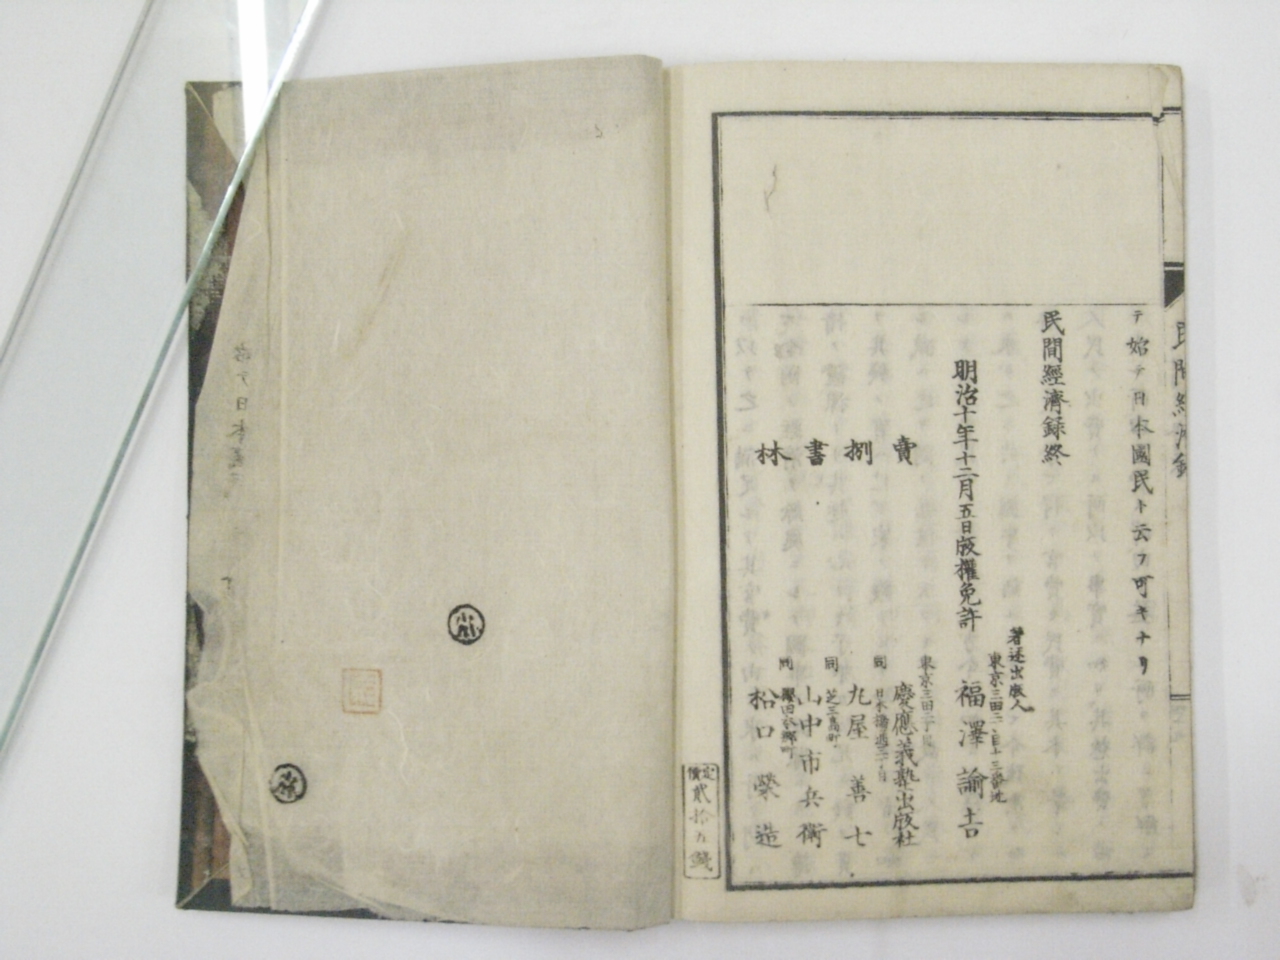 民間經濟録
テ始テ日本國民ト云フ可キナリ
民間經濟録終
明治十年十二月五日版權免許
著述出版人
東京三田二丁目十三番地
福澤諭吉
賣捌書林
東京三田二丁目
慶應義塾出版社
同
日本橋通三丁目
丸屋善七
同
芝三島町
山中市兵衛
同
松口榮造
定價
貳拾五錢